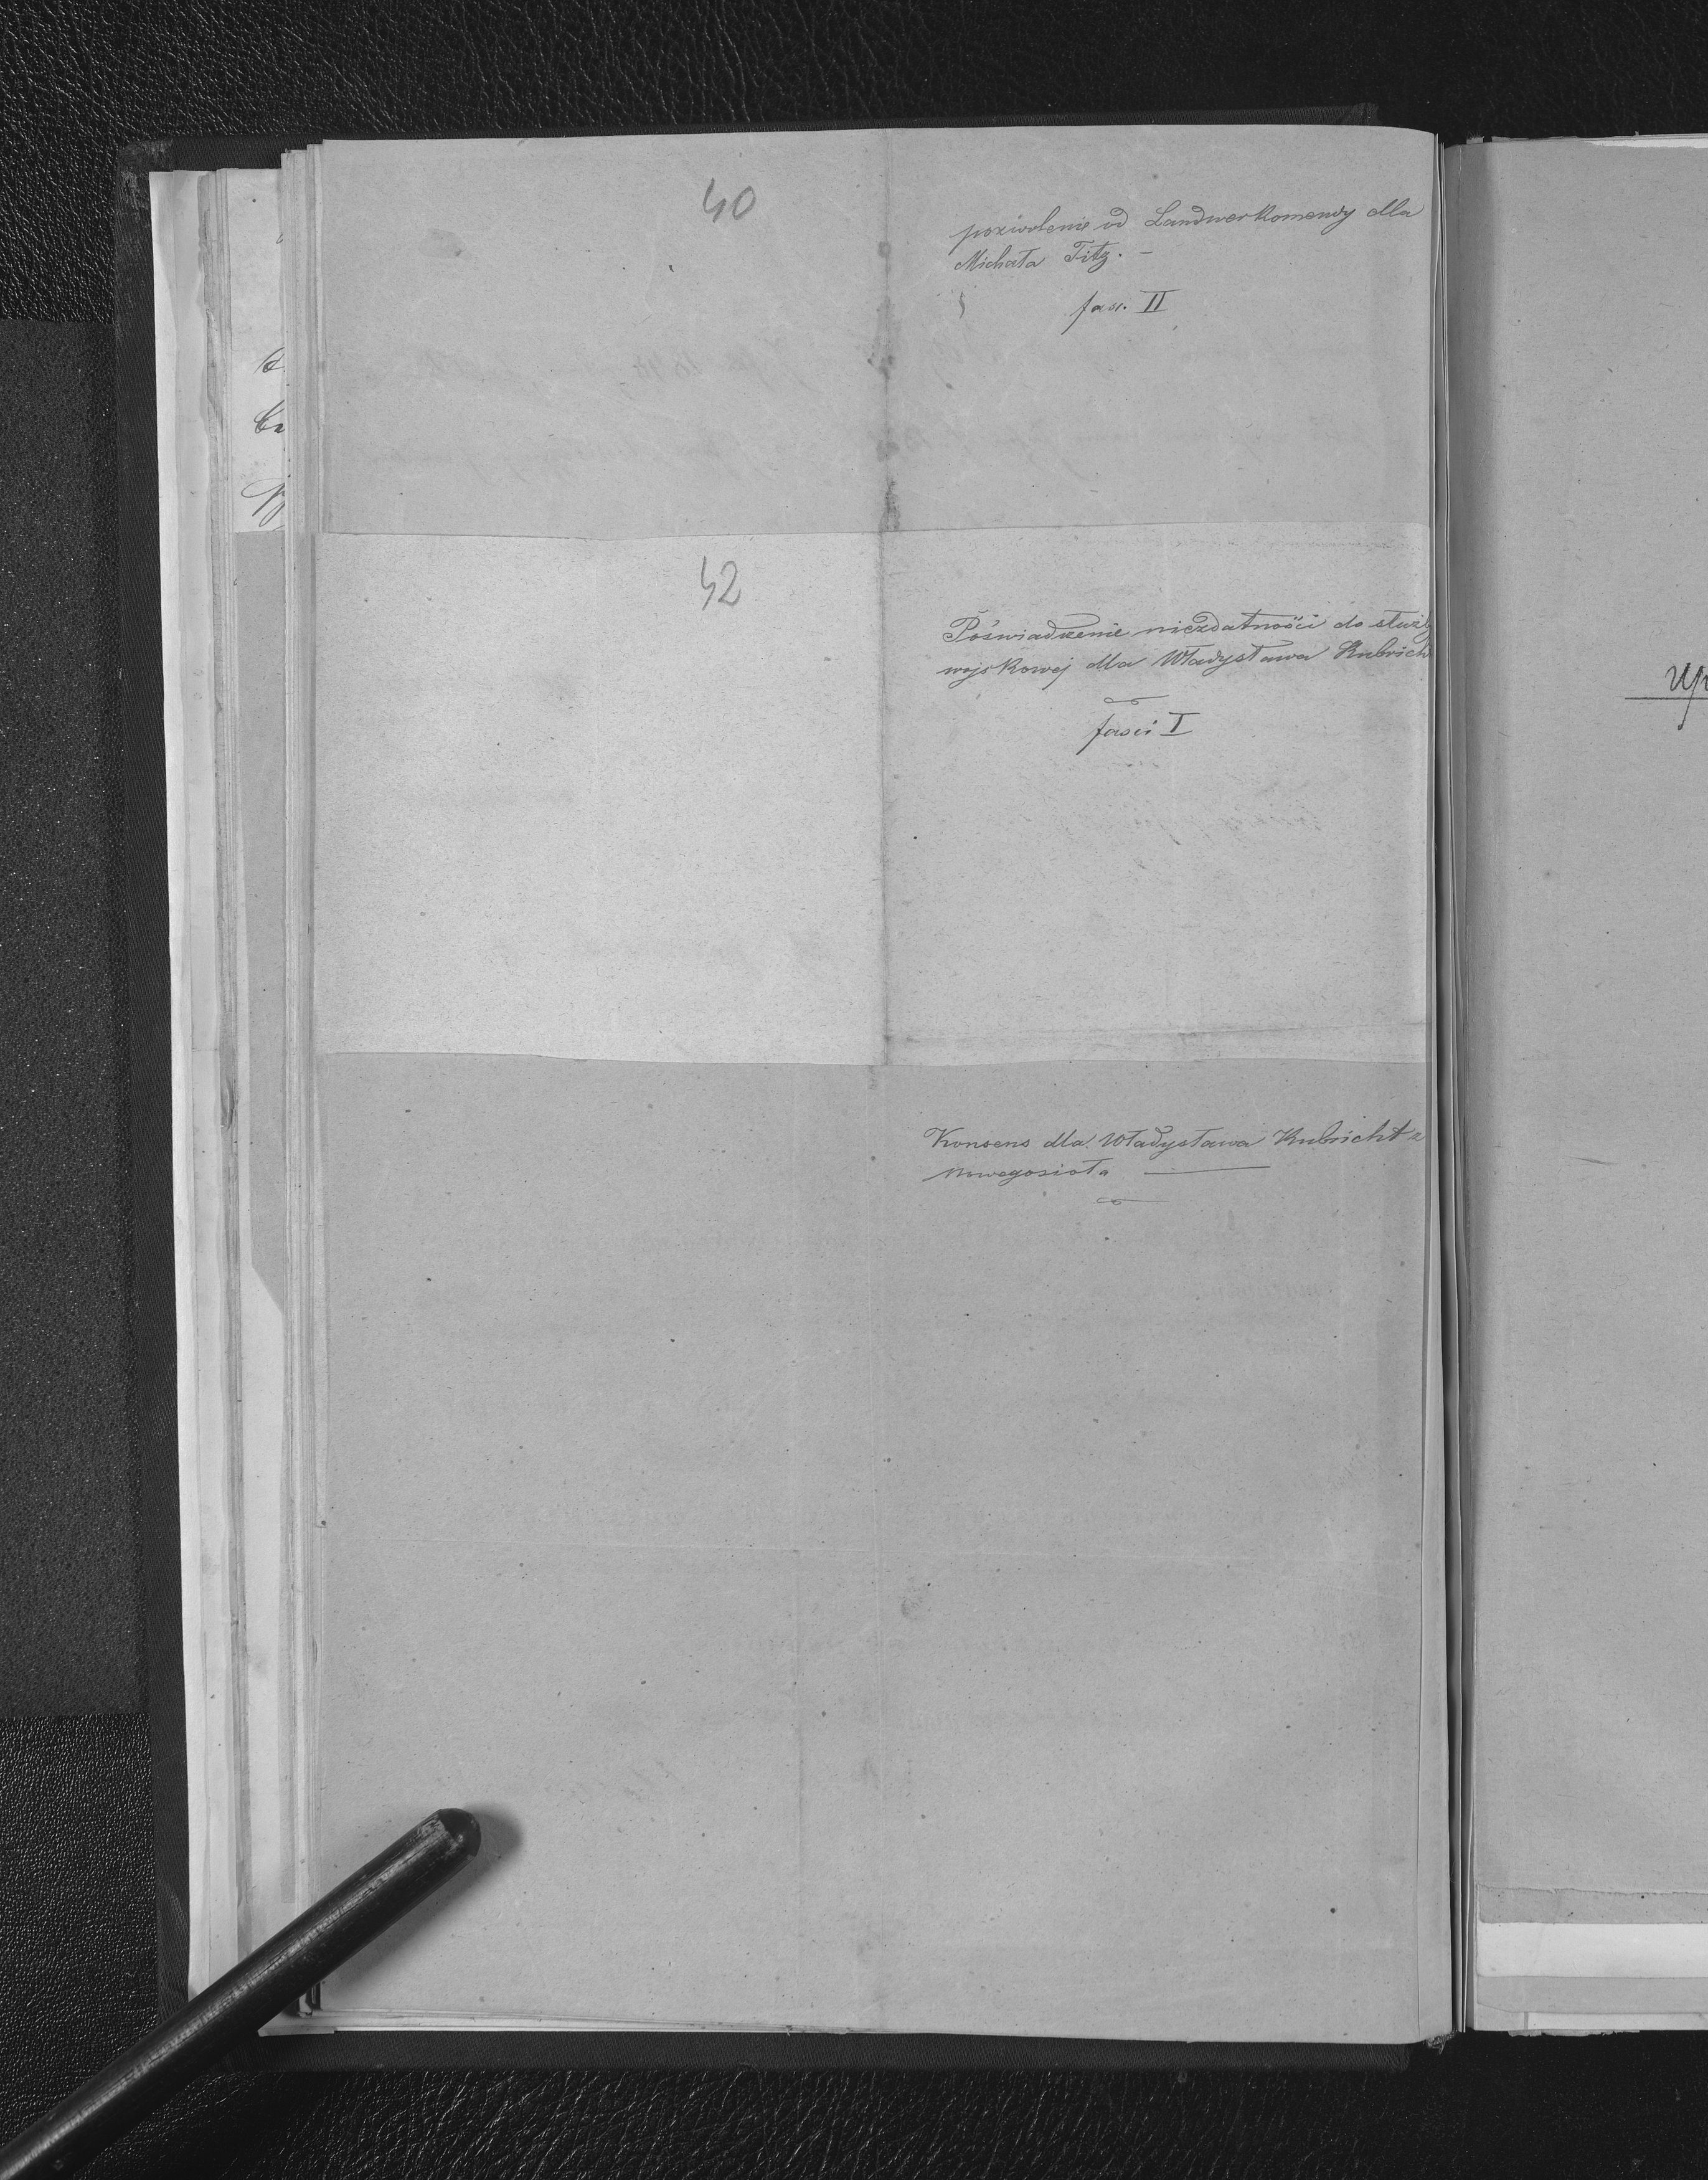 40
pozwolenie od Landwerkomendy dla
Michała Titz. –
fasc. II
42
Poświadczenie niezdatności do służby
wojskowej dla Władysława Kubricht
fasci I
Konsens dla Władysława Kubricht z
Nowegosioła